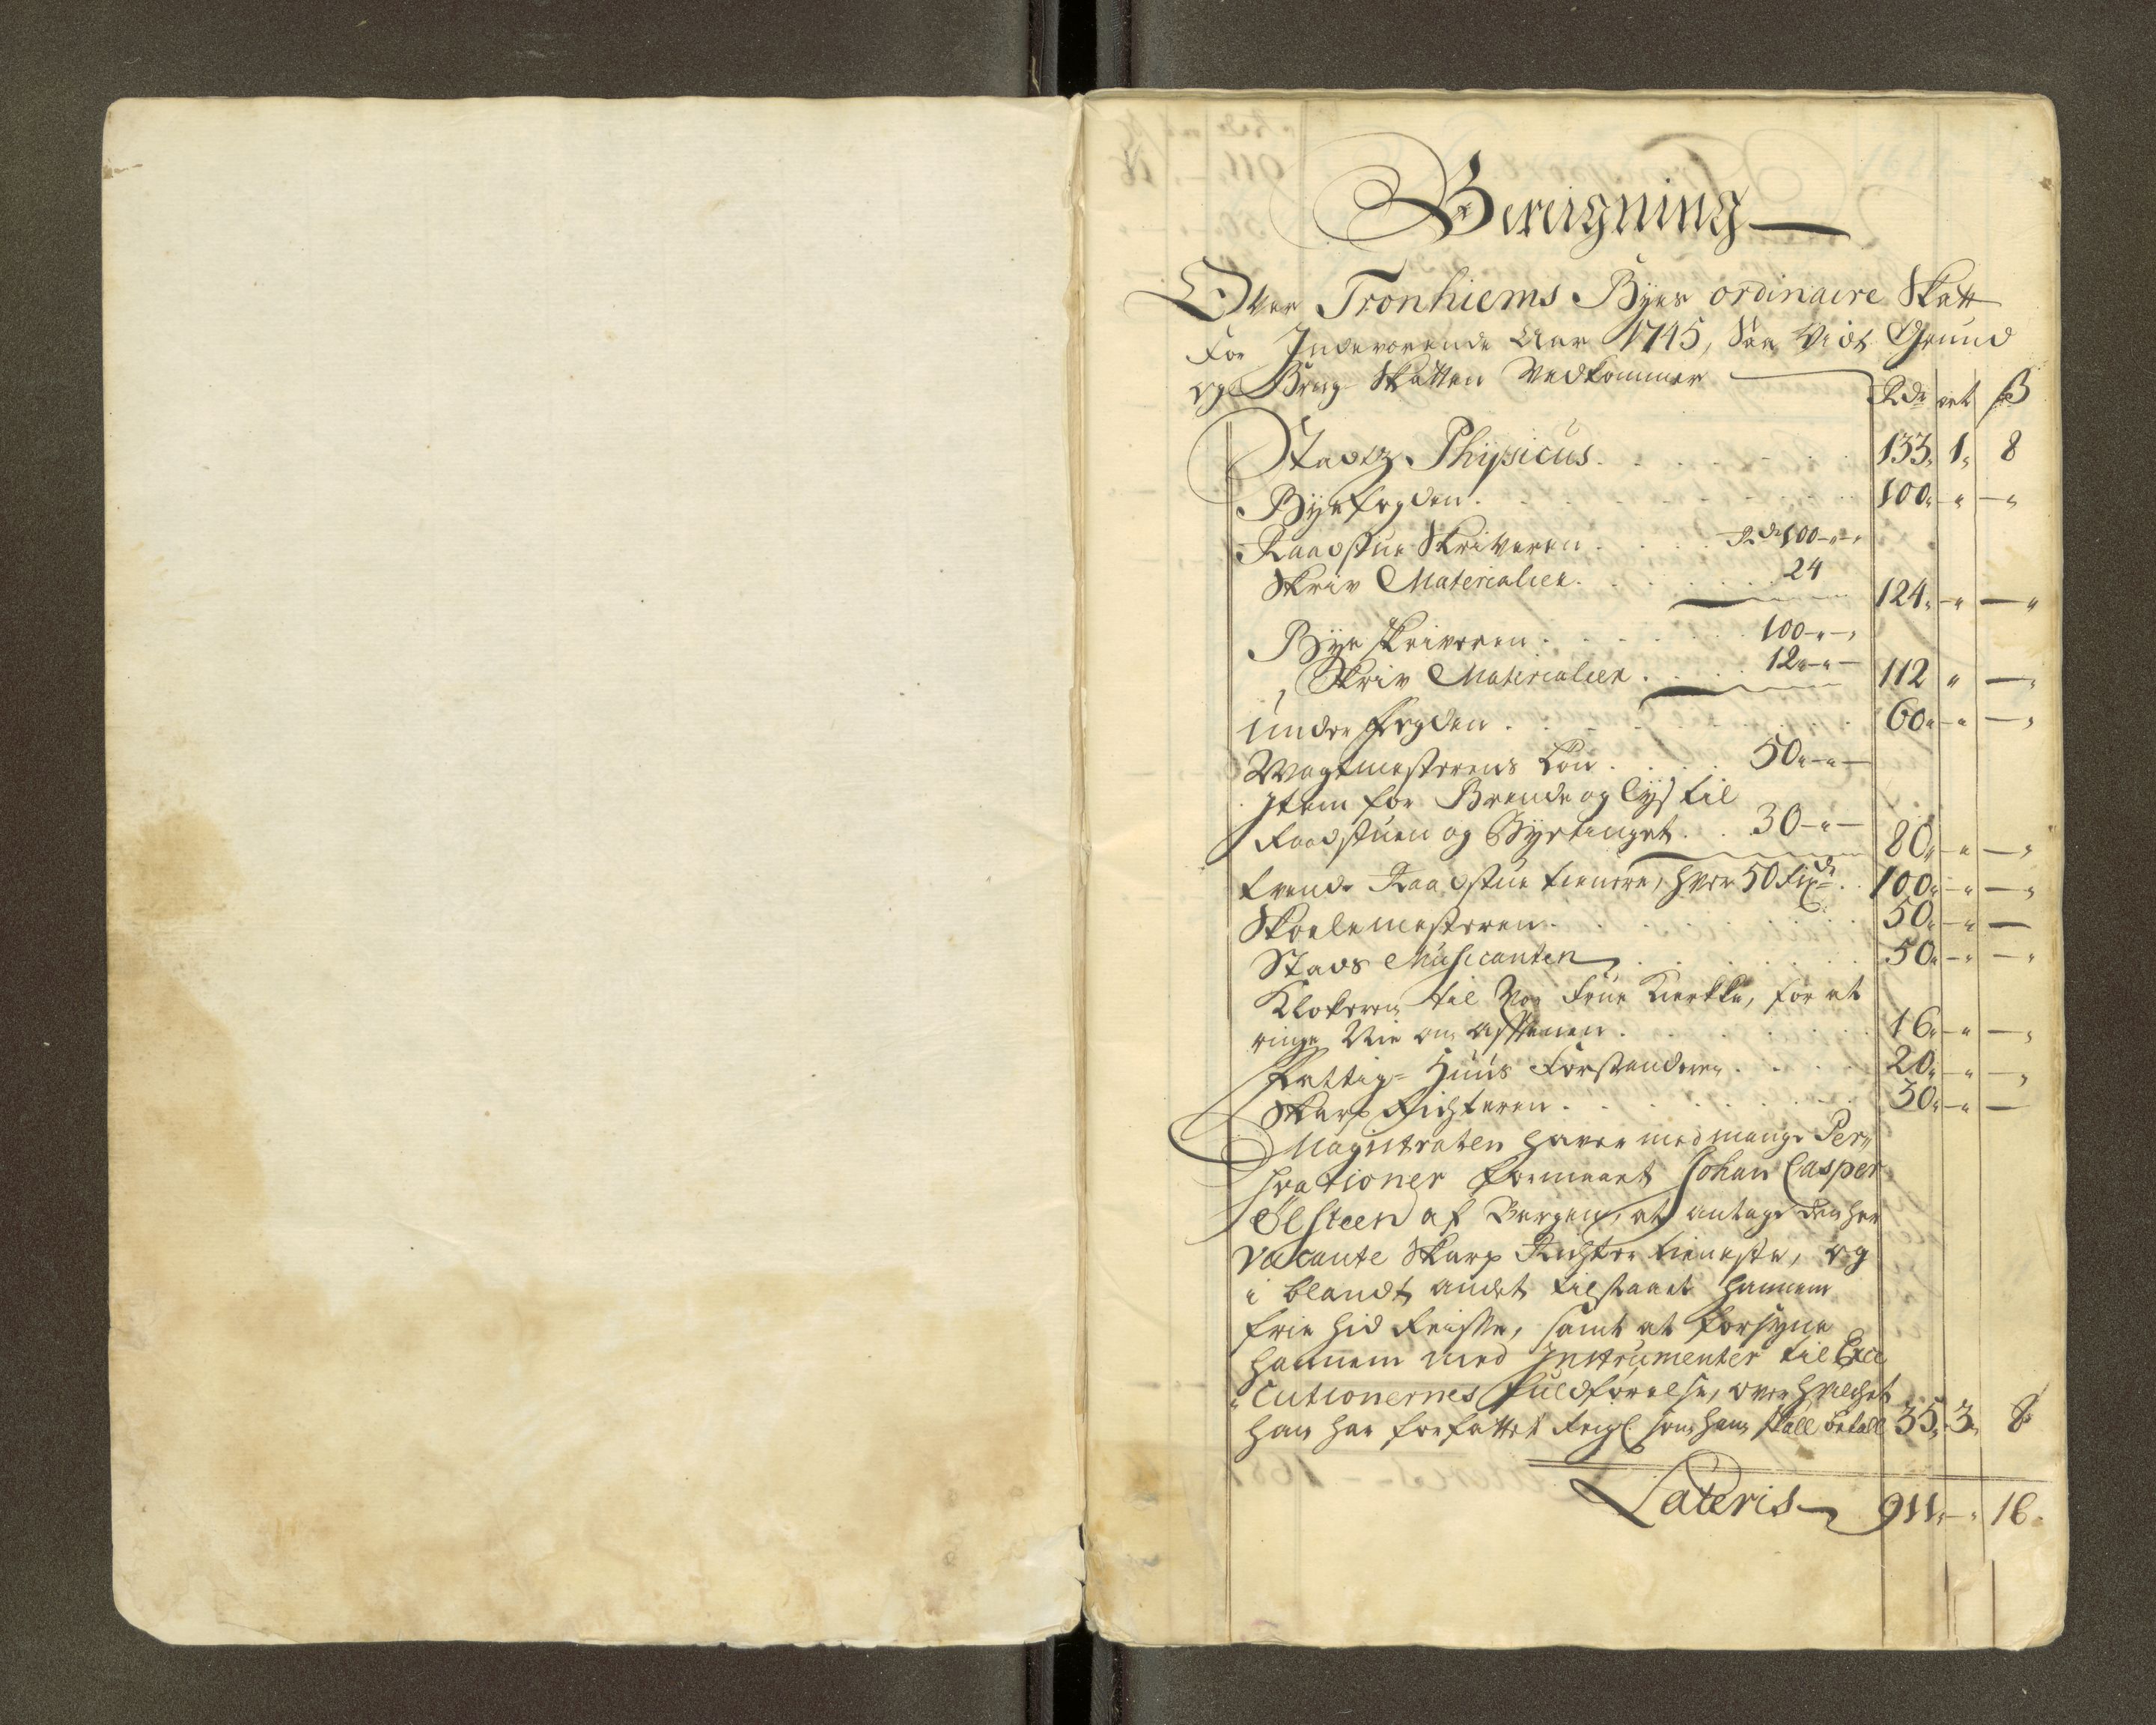 Beregning
Over Tronhiems Byes ordinaire Skatt
for Indeværende Aar 1745, Saa Vidt Grund
og Brug Skatten Vedkommer
Rdr ort ß
Stadtz Physicus 133 1 8
Byefogden 100 - -
Raadstue Skriveren Rdr 100 - -
Skriv Materialier 24 124 - -
Bye skriveren 100 - -
Skriv Materialier 12 - - 112 - -
Underfogden 60 - -
Wagtmesterens Løn 50 - -
Item for Brende og lys til
Raadstuen og Byetinget 30 - - 80 - -
tvende Raadstue tienere, hver 50 rixdr 100 - -
Skolemesteren 50 - -
Stads Musicanten 50 - -
Klokeren til Vor Frue Kierkke, for at
ringe Nie om afftenen 16 - -
Fattig-Huus Forstanderen 20 - -
Skarp Richteren 30 - -
Magistraten haver med mange Per-
svationer formaaet Johan Casper
Ølsteen af Bergen, at antage den her
vacante Skarp Richter tieneste, og
i blandt andet tilstaaet hannem
frie hid Reisse, samt at forsyne
hannem med Instrumenter til Exe
cutionernes fuldførelse, over hvilchet
han har forfattet Regl som ham skall betall 35 3 8
Lateris 911 - 16